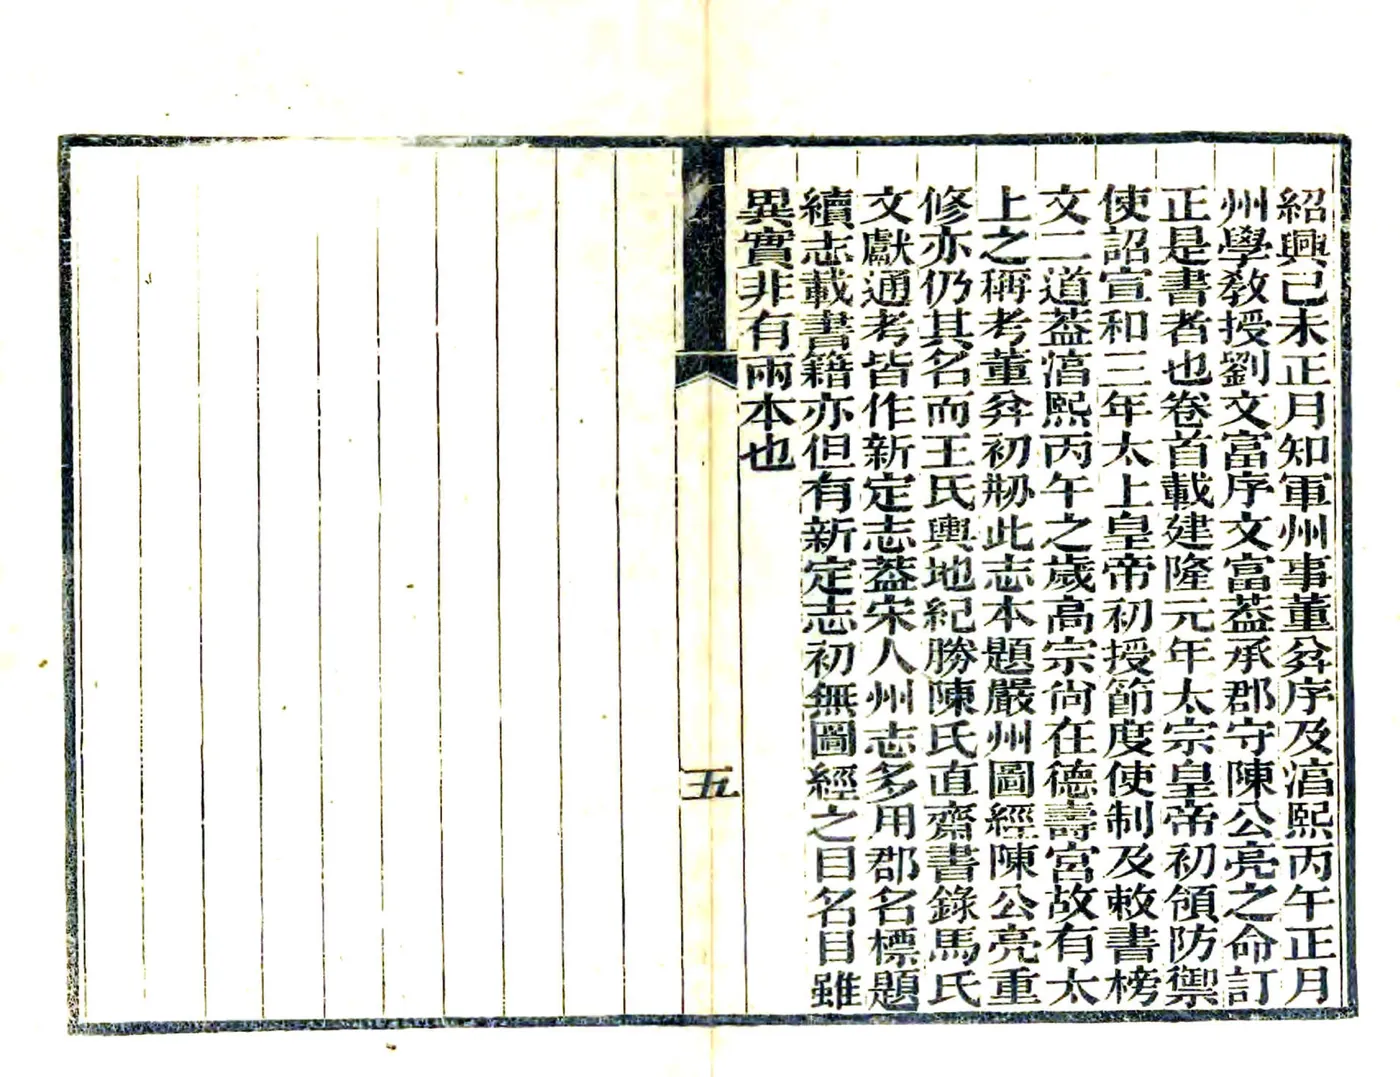 紹興己未正月知軍州事董弅序及湻熙丙午正月
州學教授劉文富序文富葢承郡守陳公亮之命訂
正是書者也卷首載建隆元年太宗皇帝初領防禦
使詔宣和三年太上皇帝初授節度使制及敕書榜
文二道葢湻熙丙午之歲高宗尙在德壽宮故有太
上之稱考董弅初刱此志本題嚴州圖經陳公亮重
修亦仍其名而王氏輿地紀勝陳氏直齋書錄馬氏
文獻通考皆作新定志葢宋人州志多用郡名標題
續志載書籍亦但有新定志初無圖經之目名目雖
異實非有兩本也
五